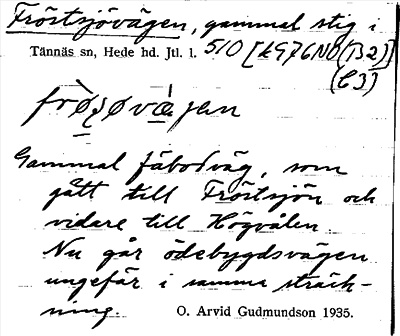 Fröstsjövägen, gammal stig i
Tännäs sn, Hede hd. Jtl. l. 510 [497 6NO (B2)]
(C3)
Gammal fäbodväg, som
gått till Fröstsjön och
vidare till Högvålen.
Nu går ödebygdsvägen
ungefär i samma sträck-
ning. O. Arvid Gudmundson 1935.